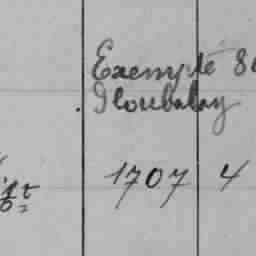 Exempté 8
Ploubalay
1707 4